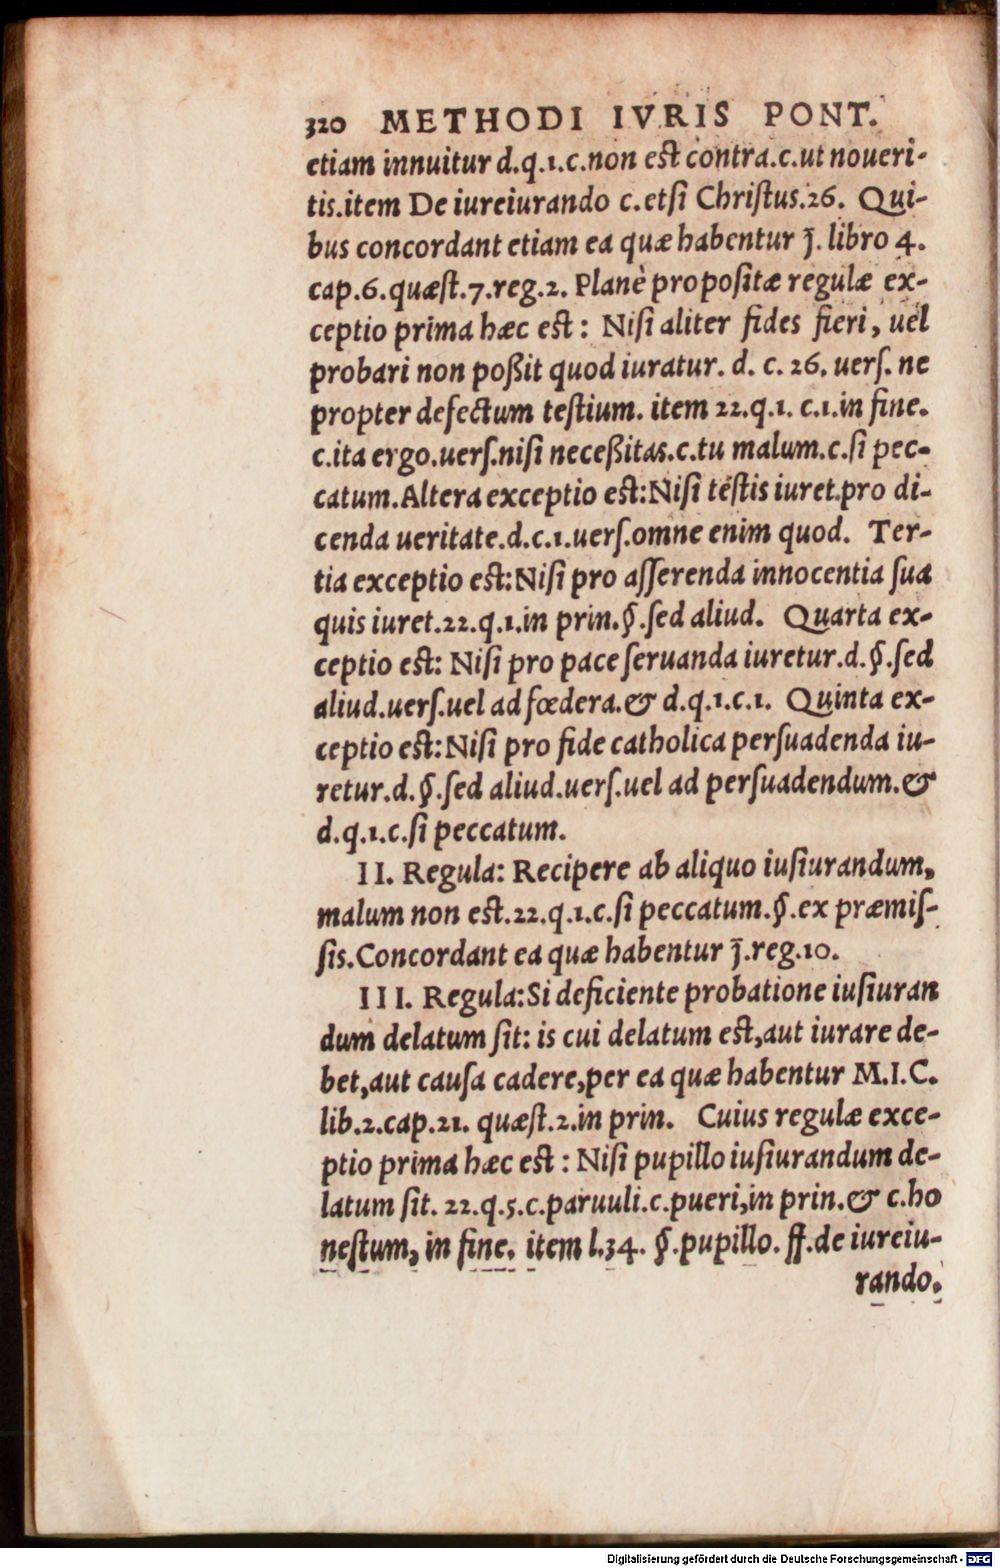 320 METHODI IVRIS PONT.
etiam innuitur d.q.1.c.non est contra.c.ut noueri-
tis.item De iureiurando c.etſi Chriſtus.26. Qui-
bus concordant etiam ea quæ habentur j̄. libro 4.
cap.6.quæſt.7.reg.2. Planè propoſitæ regulæ ex-
ceptio prima hæc est: Niſi aliter fides fieri, uel
probari non poßit quod iuratur. d. c. 26. uerſ. ne
propter defectum teſtium. item 22.q.1. c.1.in fine.
c.ita ergo.uerſ.niſi neceßitas.c.tu malum.c.ſi pec-
catum.Altera exceptio est:Niſi teſtis iuret.pro di-
cenda ueritate.d.c.1.uerſ.omne enim quod. Ter-
tia exceptio est:Niſi pro aſſerenda innocentia ſua
quis iuret.22.q.1.in prin.§.ſed aliud. Quarta ex-
ceptio est: Niſi pro pace ſeruanda iuretur.d.§.ſed
aliud.uerſ.uel ad fœdera.& d.q.1.c.1. Quinta ex-
ceptio est:Niſi pro fide catholica perſuadenda iu-
retur.d.§.ſed aliud.uerſ.uel ad perſuadendum.&
d.q.1.c.ſi peccatum.
II. Regula: Recipere ab aliquo iuſiurandum,
malum non est.22.q.1.c.ſi peccatum.§.ex præmiſ-
ſis.Concordant ea quæ habentur j̄.reg.10.
III. Regula:Si deficiente probatione iuſiuran
dum delatum ſit: is cui delatum est,aut iurare de-
bet,aut cauſa cadere,per ea quæ habentur M.I.C.
lib.2.cap.21. quæſt.2.in prin. Cuius regulæ exce-
ptio prima hæc est: Niſi pupillo iuſiurandum de-
latum ſit. 22.q.5.c.paruuli.c.pueri,in prin.& c.ho
neſtum, in fine. item l.34. §.pupillo. ff.de iureiu-
rando.
Digitalisierung gefördert durch die Deutsche Forschungsgemeinschaft - DFG